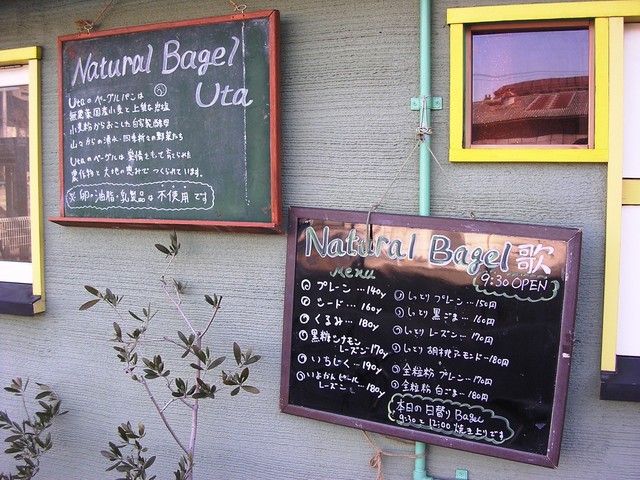 Natural Bagel
Uta
Utaのベーグルパンは
無農薬国産小麦と上質な岩塩
小麦粉からおこした自家製酵母
山々からの湧水・四季折々の野菜たち
Utaのベーグルは愛情をもって育てられた
農作物と大地の恵みでつくられています。
※卵・油脂・乳製品は不使用です
Natural Bagel 歌
Menu
9:30 OPEN
プレーン…140y
シード…160y
くるみ…180y
黒糖シナモン
レーズン…170y
いちじく…190y
いよかんピール
レーズン…180y
しっとり プレーン…150円
しっとり 黒ごま…160円
しっとり レーズン…170円
しっとり 胡桃アーモンド…180円
全粒粉 プレーン…170円
全粒粉 白ごま…180円
本日の日替り Bagel
9:30と12:00 焼き上りです